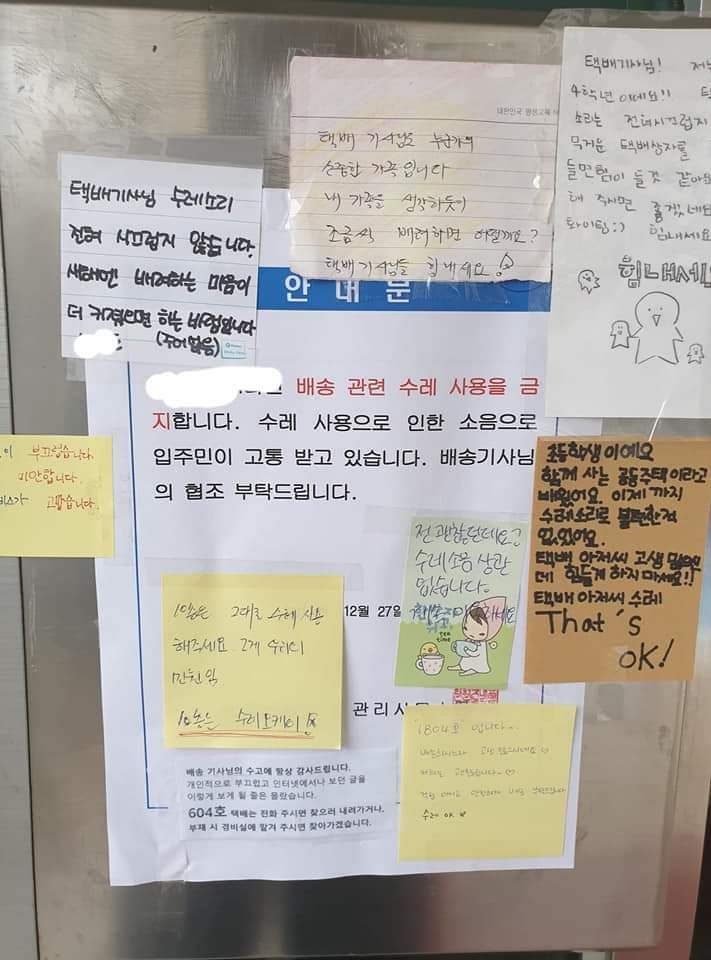 대한민국 평생교육
택배 기사님도 누군가의
소중한 가족입니다
내 가족을 생각하듯이
조금씩 배려하면 어떨까요?
택배 기사님들 힘내세요
택배기사님!
4학년이에요!!
소리는 전혀시끄럽지
무거운 택배상자를
들면 힘이 들것 같아요
해 주시면 좋겠네요
화이팅:) 힘내세요
힘내세
택배기사님 수레소리
전혀 시끄럽지 않습니다.
새해엔 배려하는 마음이
더 커졌으면 하는 바램입니다
(주어없음)
안 내 문
배송 관련 수레 사용을 금
지합니다. 수레 사용으로 인한 소음으로
입주민이 고통 받고 있습니다. 배송기사님
의 협조 부탁드립니다.
12월 27일
관리사무
부끄럽습니다.
미안합니다.
고맙습니다.
전 괜찮던데요?
수레소음 상관
없습니다.
tea time
초등학생이에요
함께 사는 공동주택이라고
배웠어요. 이제까지
수레소리로 불편한적
없었어요.
택배 아저씨 고생 많으신
데 힘들게 하지마세요!!
택배 아저씨 수레
That's
OK!
그대로 수레 사용
해주세요. 그게 우리의
수레오케이
1804호 입니다
수레 OK
배송 기사님의 수고에 항상 감사드립니다.
개인적으로 부끄럽고 인터넷에서나 보던 글을
이렇게 보게 될 줄은 몰랐습니다.
604호 택배는 전화 주시면 찾으러 내려가거나,
부재 시 경비실에 맡겨 주시면 찾아가겠습니다.